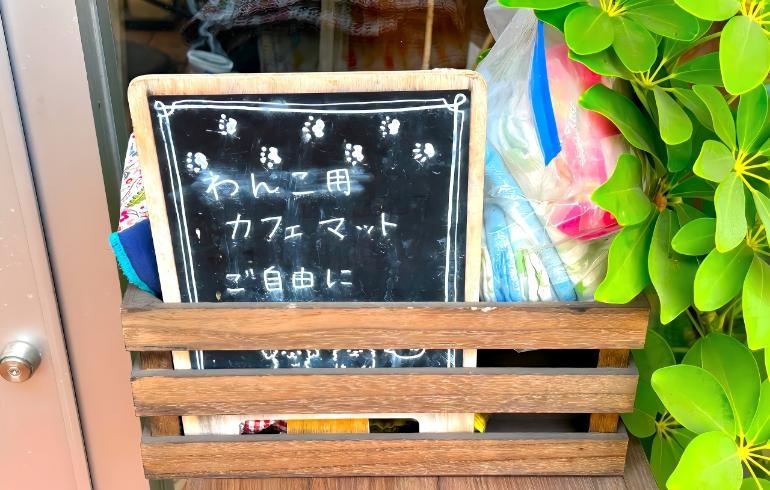 わんこ用
カフェマット
ご自由に